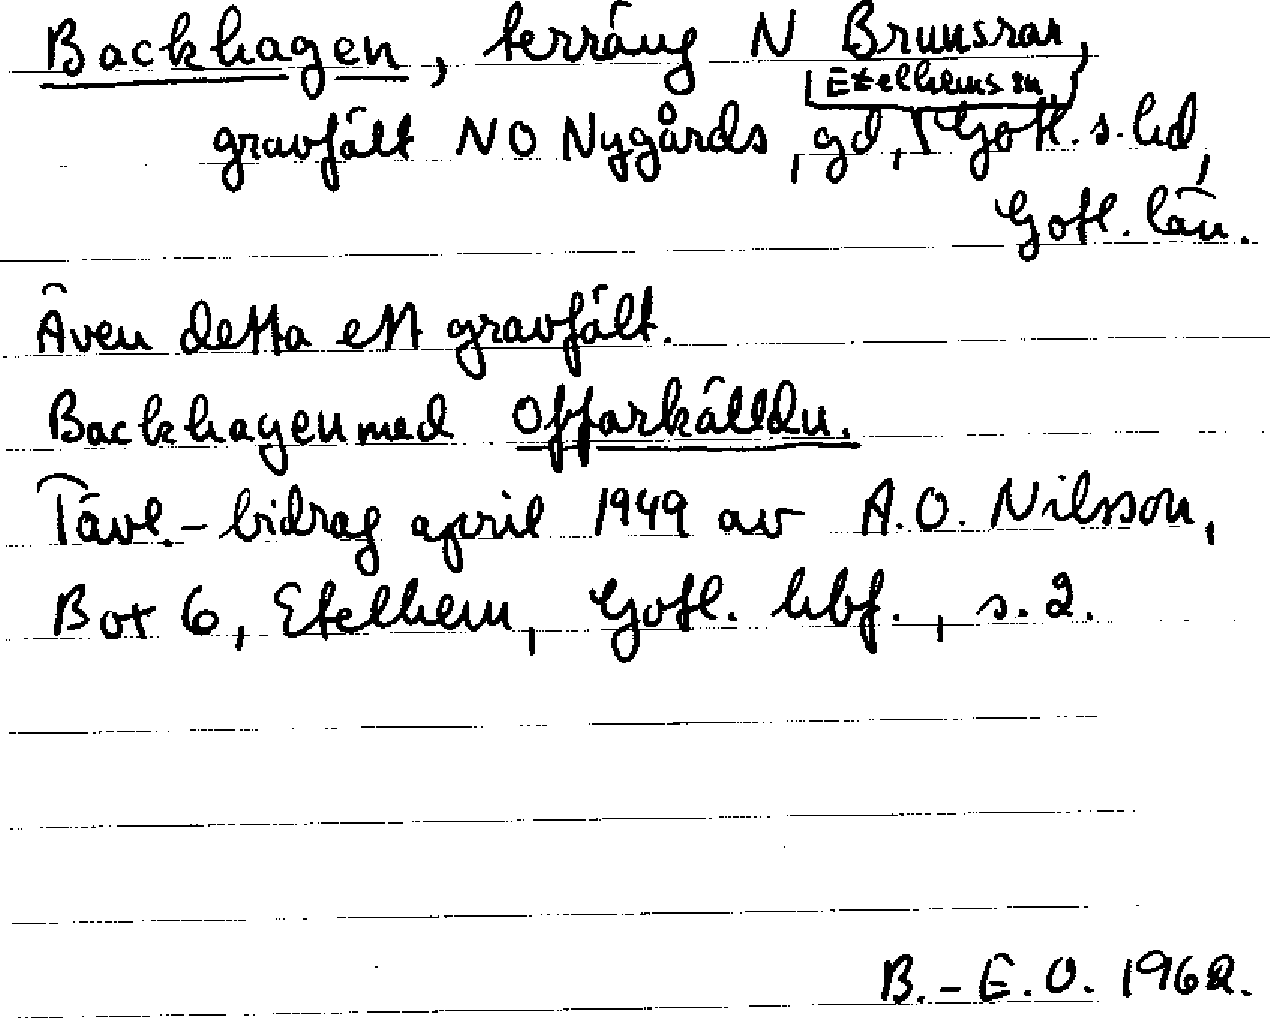 Backhagen, terräng N Brunsrar,
Etelhems sn
gravfält NO Nygårds, gd, Gotl. s. hd,
Gotl. län.
Även detta ett gravfält.
Backhagen med Offarkälldu.
Tävl.-bidrag april 1949 av A.O. Nilsson,
Box 6, Etelhem, Gotl. hbf., s. 2.
B.-E.O. 1962.